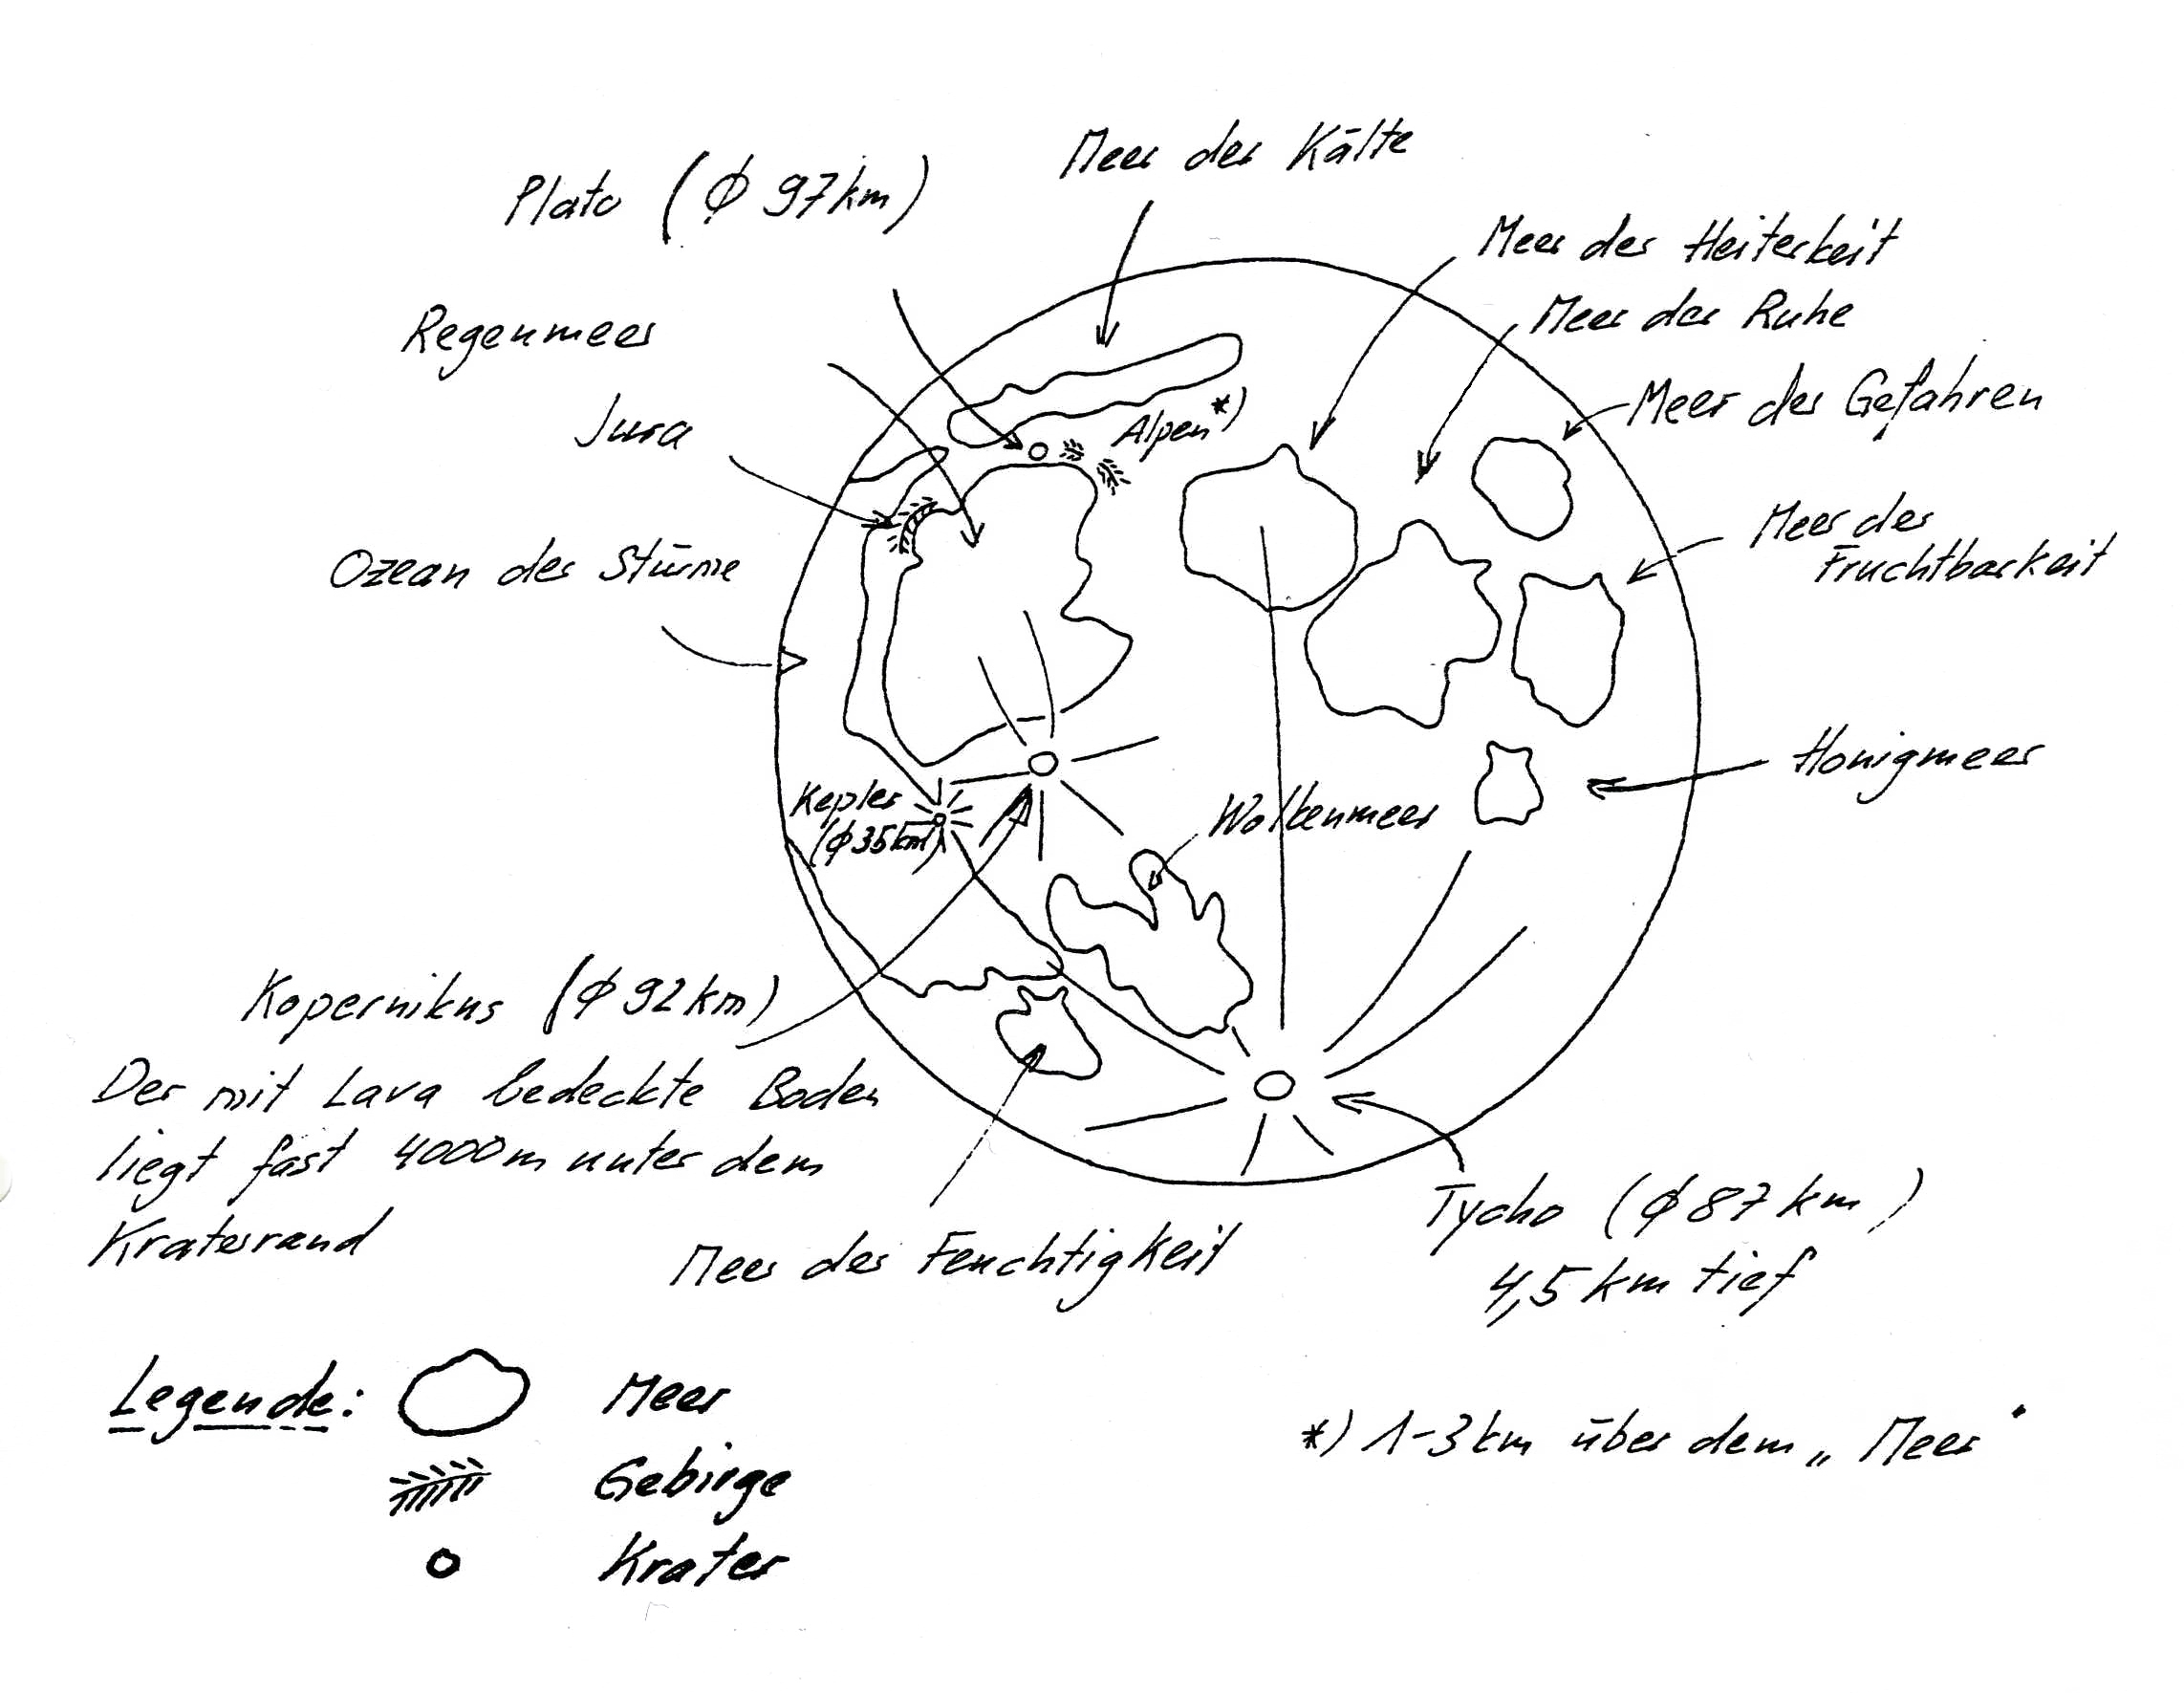 Meer der Kälte
Plato (ϕ 97km)
Meer der Heiterkeit
Meer der Ruhe
Regenmeer
Meer der Gefahren
Jura
Alpen *)
Meer der
Fruchtbarkeit
Ozean der Stürme
Honigmeer
Kepler
(ϕ 35km)
Wolkenmeer
Kopernikus (ϕ 92km)
Der mit Lava bedeckte Boden
liegt fast 4000m unter dem
Kraterrand
Meer der Feuchtigkeit
Tycho (ϕ 87 km)
4,5 km tief
Legende:
Meer
Gebirge
Krater
*) 1-3 km über dem „Meer"